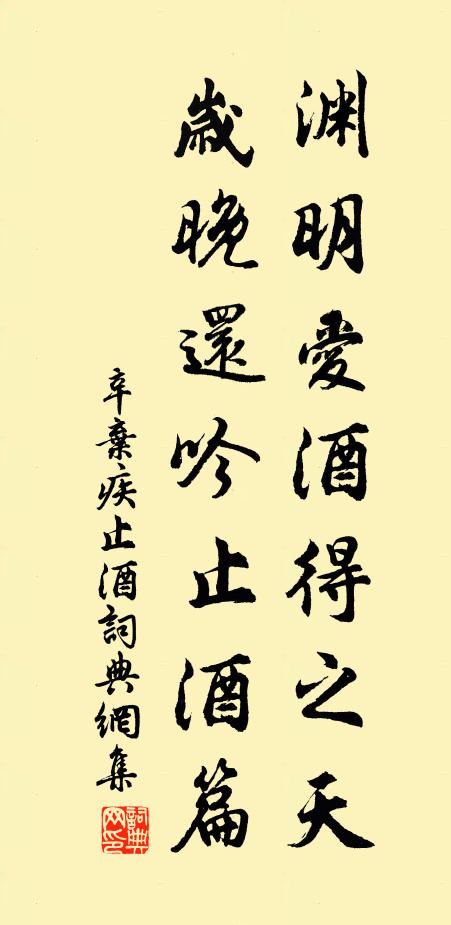 渊明愛酒得之天
歲晚還吟止酒篇
辛棄疾止酒詞典網集
詞典網印